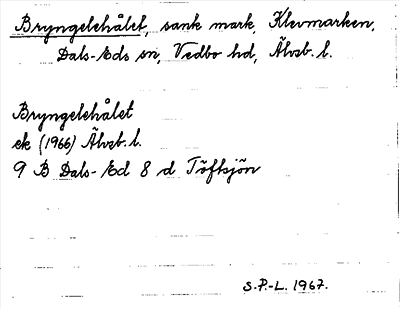 Bryngelehålet, sank mark, Klevmarken,
Dals-Eds sn, Vedbo hd, Älvsb. l.
Bryngelehålet
ek (1966) Älvsb. l.
9 B Dals-Ed 8 d Töftsjön
S.P.-L. 1967.